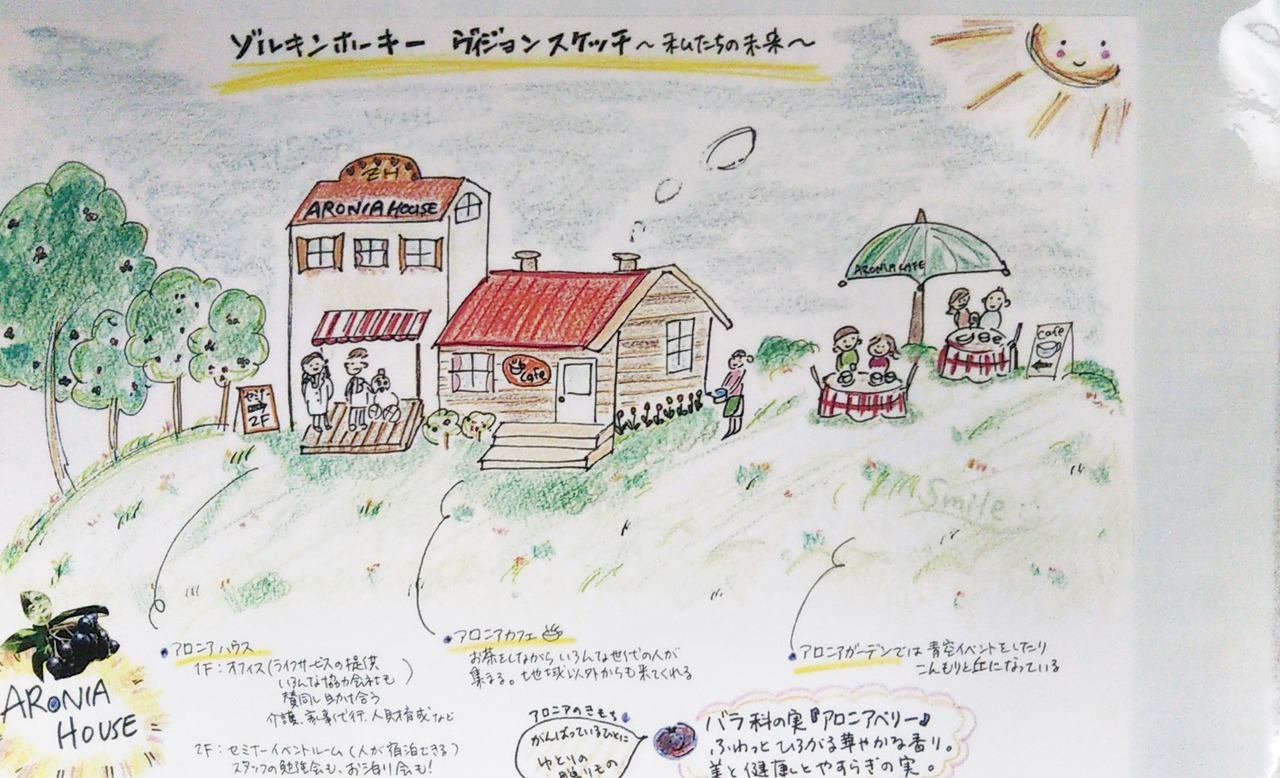 ゾルキンホーキー ヴィジョンスケッチ～私たちの未来～
ZH
ARONIA HOUSE
ARONIA CAFE
cafe
cafe
セミナー
2F
Smile
アロニアハウス
1F：オフィス（ライフサービスの提供
いろんな協力会社も
賛同し助け合う）
介護、家事代行、人財育成など
2F：セミナーイベントルーム（人が宿泊できる）
スタッフの勉強会も、お泊り会も！
アロニアカフェ
お茶をしながら いろんな世代の人が
集まる。地球以外からも来てくれる
アロニアガーデンでは 青空イベントをしたり
こんもりと丘になっている
ARONIA
HOUSE
アロニアのきもち
がんばっているひとに
ゆとりの
贈りもの
バラ科の実『アロニアベリー』
ふわっとひろがる華やかな香り。
美と健康とやすらぎの実。